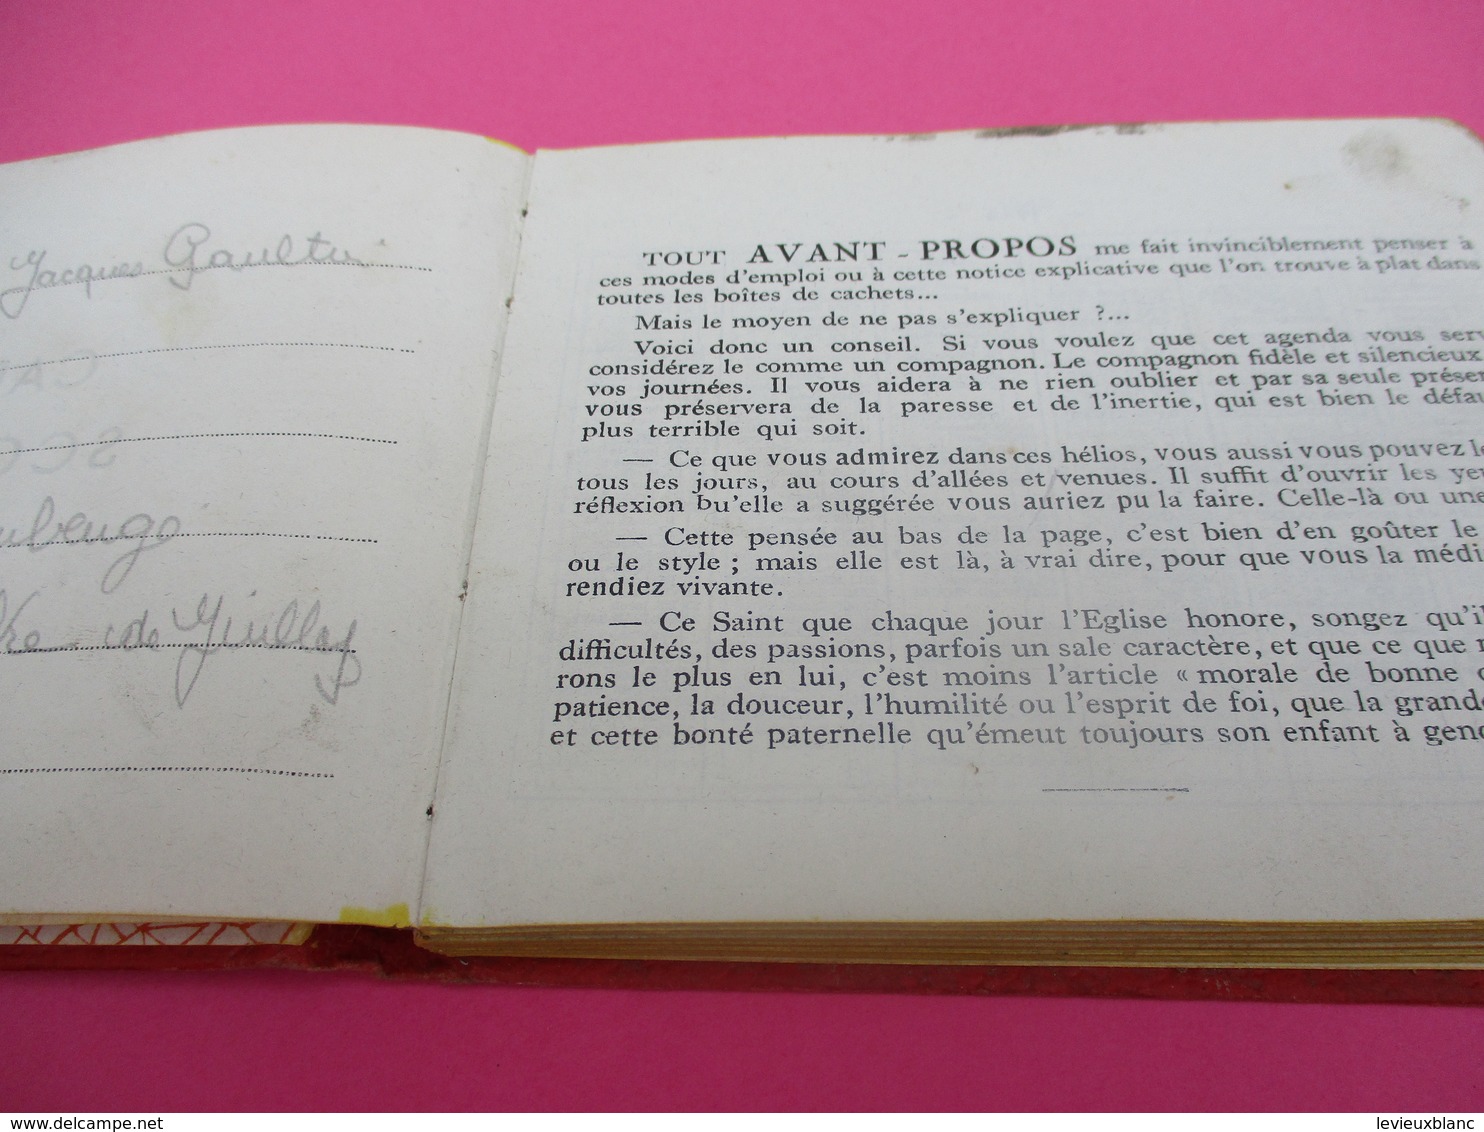 Jacques Gaultier
de Miullay
TOUT AVANT-PROPOS me fait invinciblement penser à
ces modes d'emploi ou à cette notice explicative que l'on trouve à plat dans
toutes les boîtes de cachets...
Mais le moyen de ne pas s'expliquer ?...
Voici donc un conseil. Si vous voulez que cet agenda vous serv
considérez le comme un compagnon. Le compagnon fidèle et silencieux
vos journées. Il vous aidera à ne rien oublier et par sa seule présen
vous préservera de la paresse et de l'inertie, qui est bien le défau
plus terrible qui soit.
— Ce que vous admirez dans ces hélios, vous aussi vous pouvez le
tous les jours, au cours d'allées et venues. Il suffit d'ouvrir les yeu
réflexion bu'elle a suggérée vous auriez pu la faire. Celle-là ou une
— Cette pensée au bas de la page, c'est bien d'en goûter le
ou le style ; mais elle est là, à vrai dire, pour que vous la médi
rendiez vivante.
— Ce Saint que chaque jour l'Eglise honore, songez qu'il
difficultés, des passions, parfois un sale caractère, et que ce que
rons le plus en lui, c'est moins l'article « morale de bonne
patience, la douceur, l'humilité ou l'esprit de foi, que la grande
et cette bonté paternelle qu'émeut toujours son enfant à geno
delcampe.net
levieuxblanc